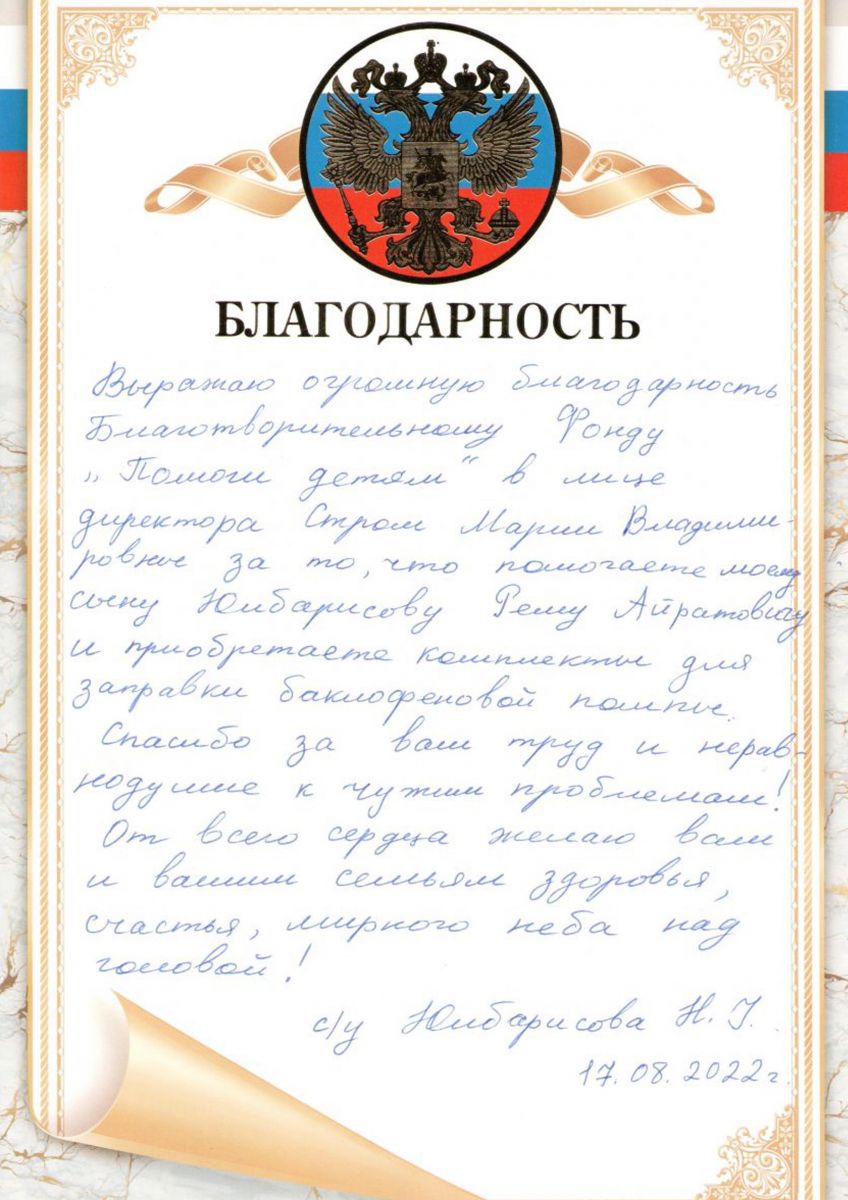 БЛАГОДАРНОСТЬ
Выражаю огромную благодарность
Благотворительному Фонду
„Помоги детям“ в лице
директора Стром Марии Владими-
ровны за то, что помогаете моему
сыну Юлбарисову Рему Айратовичу
и приобретаете комплекты для
заправки баклофеновой помпы.
Спасибо за ваш труд и нерав-
нодушие к чужим проблемам!
От всего сердца желаю вам
и вашим семьям здоровья,
счастья, мирного неба над
головой!
с/у Юлбарисова Н. У.
17.08.2022г.